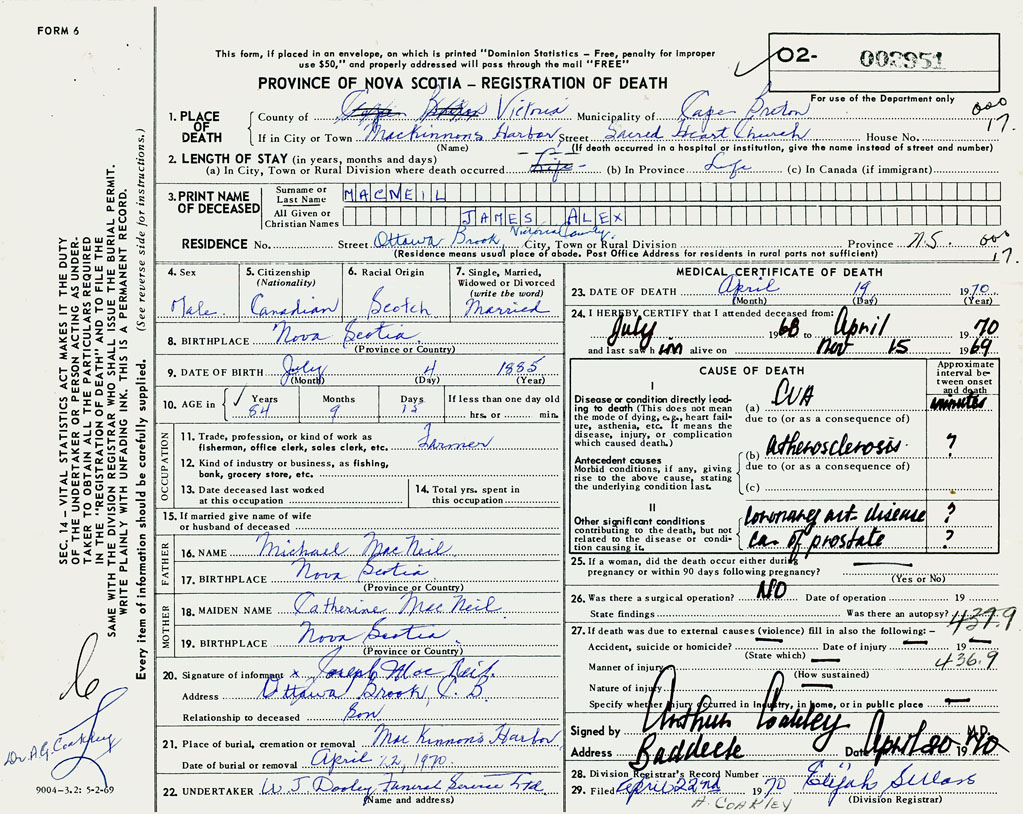 FORM 6
This form, if placed in an envelope, on which is printed "Dominion Statistics – Free, penalty for improper
use $50," and properly addressed will pass through the mail "FREE"
PROVINCE OF NOVA SCOTIA – REGISTRATION OF DEATH
02- 002951
For use of the Department only
1. PLACE OF DEATH
County of Victoria Municipality of Cape Breton 000
If in City or Town MacKinnons Harbor Street Sacred Heart Church House No. 17.
(Name) (If death occurred in a hospital or institution, give the name instead of street and number)
2. LENGTH OF STAY (in years, months and days)
(a) In City, Town or Rural Division where death occurred Life (b) In Province Life (c) In Canada (if immigrant)
3. PRINT NAME OF DECEASED
Surname or Last Name MACNEIL
All Given or Christian Names JAMES ALEX
RESIDENCE No. Street Ottawa Brook, Victoria County. City, Town or Rural Division Province N.S. 000
(Residence means usual place of abode. Post Office Address for residents in rural parts not sufficient) 17.
4. Sex Male
5. Citizenship (Nationality) Canadian
6. Racial Origin Scotch
7. Single, Married, Widowed or Divorced (write the word) Married
8. BIRTHPLACE Nova Scotia
(Province or Country)
9. DATE OF BIRTH July 4 1885
(Month) (Day) (Year)
10. AGE in Years Months Days If less than one day old
84 9 15 hrs. or min.
OCCUPATION
11. Trade, profession, or kind of work as
fisherman, office clerk, sales clerk, etc. Farmer
12. Kind of industry or business, as fishing,
bank, grocery store, etc.
13. Date deceased last worked
at this occupation
14. Total yrs. spent in
this occupation
15. If married give name of wife
or husband of deceased
FATHER
16. NAME Michael MacNeil
17. BIRTHPLACE Nova Scotia
(Province or Country)
MOTHER
18. MAIDEN NAME Catherine MacNeil
19. BIRTHPLACE Nova Scotia
(Province or Country)
20. Signature of informant x Joseph MacNeil
Address Ottawa Brook, C.B
Relationship to deceased Son
21. Place of burial, cremation or removal MacKinnons Harbor
Date of burial or removal April 22, 1970
22. UNDERTAKER W J Dooley Funeral Service Ltd.
(Name and address)
MEDICAL CERTIFICATE OF DEATH
23. DATE OF DEATH April 19 1970
(Month) (Day) (Year)
24. I HEREBY CERTIFY that I attended deceased from:
July 1968 to April 1970
and last saw him alive on Nov 15 1969
CAUSE OF DEATH
Approximate interval between onset and death
I
Disease or condition directly leading to death (This does not
the mode of dying, e.g., heart failure, asthenia, etc. It means the
disease, injury, or complication
which caused death.)
(a) CVA minutes
due to (or as a consequence of)
(b) Atherosclerosis ?
Antecedent causes
Morbid conditions, if any, giving
rise to the above cause, stating
the underlying condition last.
due to (or as a consequence of)
(c)
II
Other significant conditions
contributing to the death, but not
related to the disease or condition causing it.
Coronary art. disease ?
Ca of prostate ?
25. If a woman, did the death occur either during
pregnancy or within 90 days following pregnancy?
(Yes or No)
26. Was there a surgical operation? NO Date of operation 19
State findings Was there an autopsy? 437.9
27. If death was due to external causes (violence) fill in also the following: –
Accident, suicide or homicide? Date of injury 19
(State which) 436.9
Manner of injury
(How sustained)
Nature of injury
Specify whether injury occurred in Industry, in home, or in public place
Signed by Arthur Coakley M.D.
Address Baddeck Date April 20 1970
28. Division Registrar's Record Number
29. Filed April 22nd 1970
(Division Registrar)
A. COAKLEY
SEC. 14 – VITAL STATISTICS ACT MAKES IT THE DUTY
OF THE UNDERTAKER OR PERSON ACTING AS UNDER-
TAKER TO OBTAIN ALL THE PARTICULARS REQUIRED
IN THE "REGISTRATION OF DEATH" AND TO FILE THE
SAME WITH THE DIVISION REGISTRAR WHO SHALL ISSUE THE BURIAL PERMIT.
WRITE PLAINLY WITH UNFADING INK. THIS IS A PERMANENT RECORD.
Every item of information should be carefully supplied. (See reverse side for instructions.)
Dr. A.G. Coakley
9004-3.2: 5-2-69